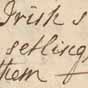 Irish s
setling
them